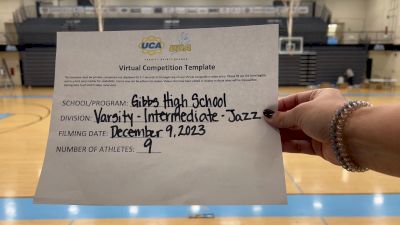 UCA
UDA
VARSITY SPIRIT BRANDS
Virtual Competition Template
SCHOOL/PROGRAM: Gibbs High School
DIVISION: Varsity - Intermediate - Jazz
FILMING DATE: December 9, 2023
NUMBER OF ATHLETES: 9